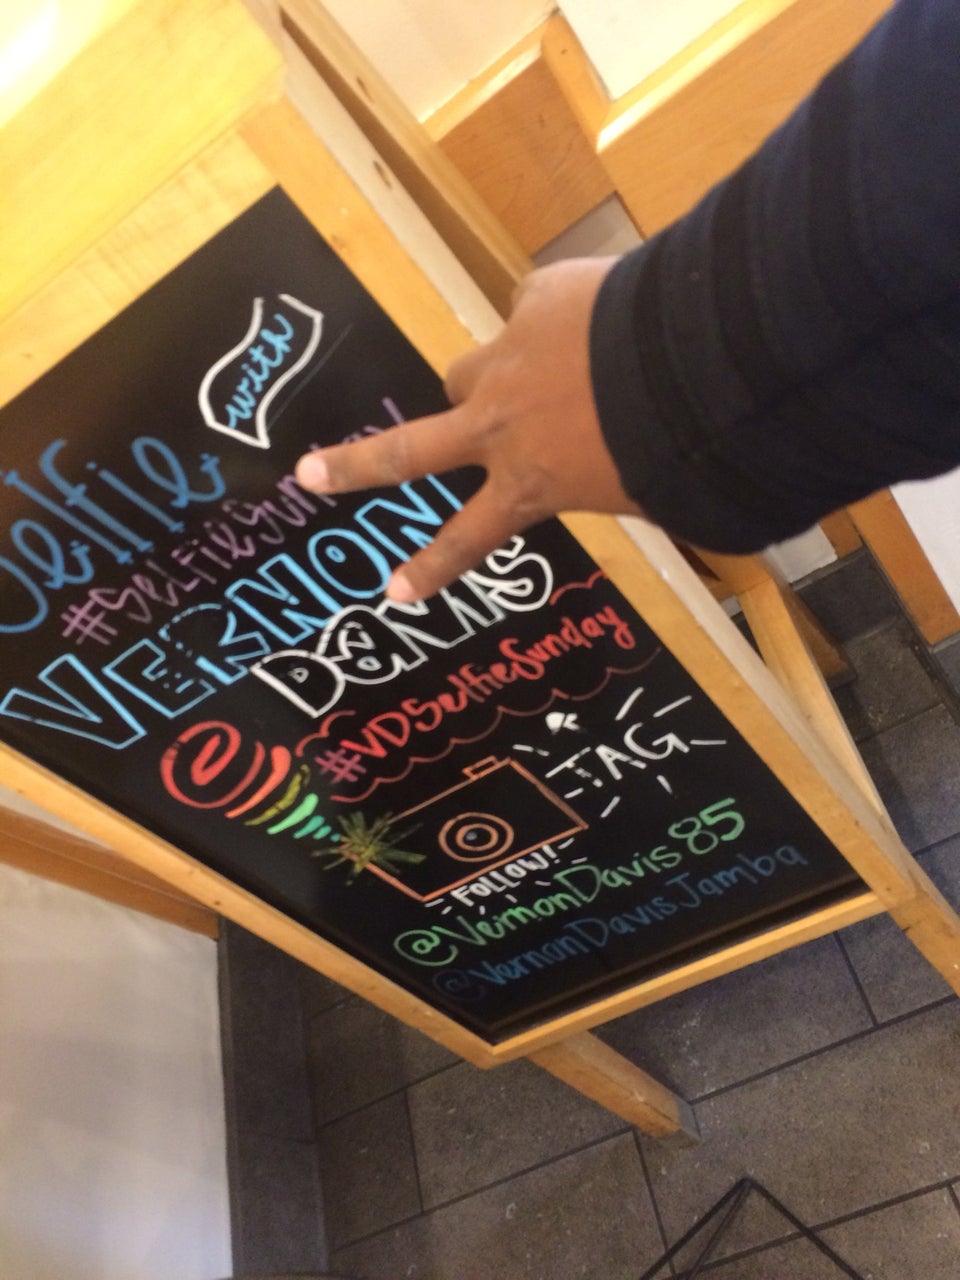 Selfie with
#SelfieSunday
VERNON
DAVIS
#VDSelfieSunday
TAG
FOLLOW!
@VernonDavis85
@VernonDavisJamba